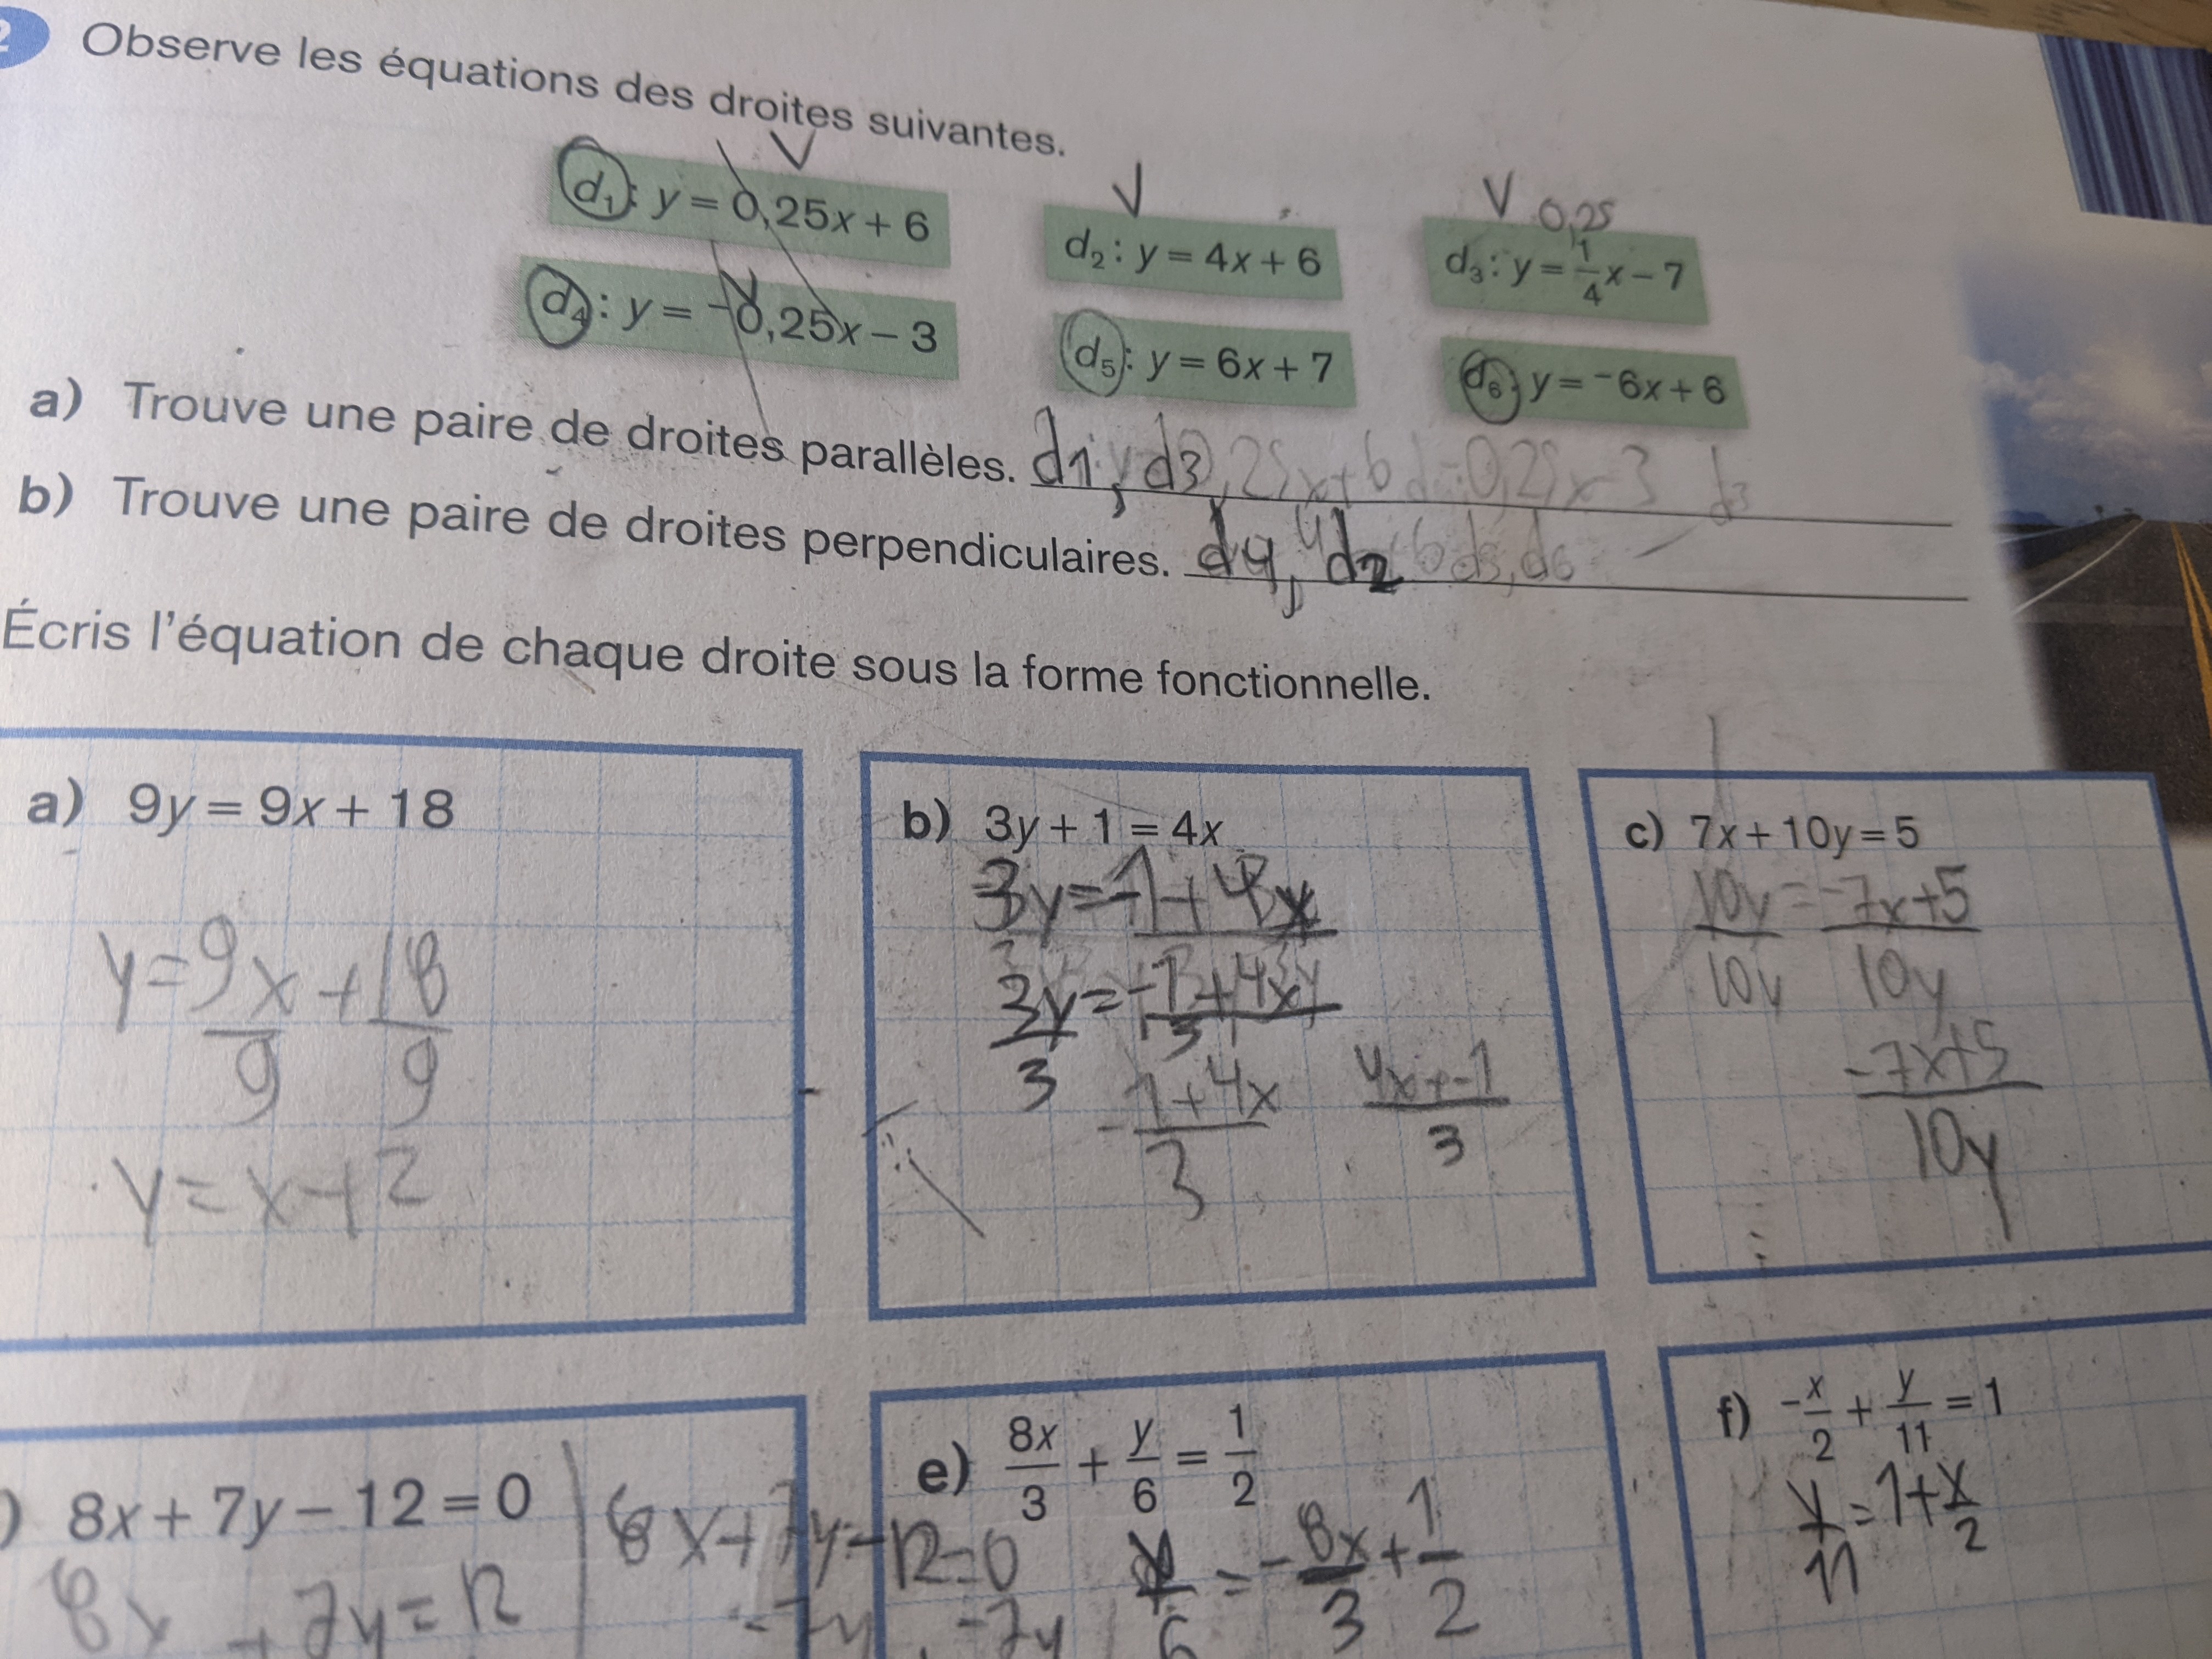 2 Observe les équations des droites suivantes.
d₁: y = 0,25x + 6
d₂: y = 4x + 6
0,25
d₃: y = 1/4 x − 7
d₄: y = ⁻0,25x − 3
d₅: y = 6x + 7
d₆: y = ⁻6x + 6
a) Trouve une paire de droites parallèles. d1, d3
b) Trouve une paire de droites perpendiculaires. d4, d2
Écris l'équation de chaque droite sous la forme fonctionnelle.
a) 9y = 9x + 18
y = 9x/9 + 18/9
y = x + 2
b) 3y + 1 = 4x
3y = -1 + 4x
3y/3 = -1 + 4x/3
-1 + 4x/3
4x + -1/3
c) 7x + 10y = 5
10y/10y = -7x + 5/10y
-7x + 5/10y
) 8x + 7y − 12 = 0
8x + 7y = 12
8x + 7y - 12 = 0
-7y -7y
e) 8x/3 + y/6 = 1/2
y/6 = -8x/3 + 1/2
f) -x/2 + y/11 = 1
y/11 = 1 + x/2